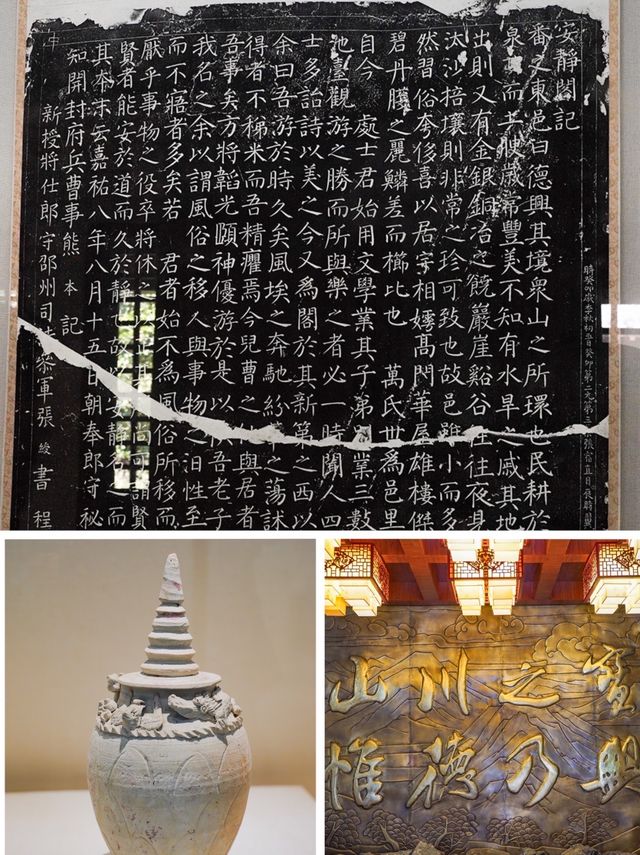 安靜閣記
番之東邑曰德興其境衆山之所環也民耕於
泉而上腴歲常豐美不知有水旱之戚其地
出則又有金銀銅冶之饒巖崖谿谷往往夜身
汰沙掊壤則非常之珍可致也故邑雖小而多
然習俗夸侈喜以居宇相嫮高門華屋雄樓傑
碧丹雘之麗鱗差而櫛比也 萬氏世爲邑里
自今 處士君始用文學業其子弟別業三數
池臺觀游之勝而所與樂之者必一時聞人四
士多詒詩以美之今又爲閣於其新第之西以
余曰吾游於時久矣風埃之奔馳紛之蕩訹
得者不稊米而吾精癯焉今兒曹之與居者
吾事矣方將韜光頤神優游於是以吾老子
我名之余以謂風俗之移人與事物之汨性至
而不寤者多矣若 君者始不爲風俗所移而
厭乎事物之役卒將休以止其尚可謂賢
賢者能安於道而久於靜也故以安靜名之而
其本末云嘉祐八年八月十五日朝奉郎守祕
知開封府兵曹事熊 本 記
新授將仕郎守邵州司叅軍張 書 程
寶之川山
興乃德惟